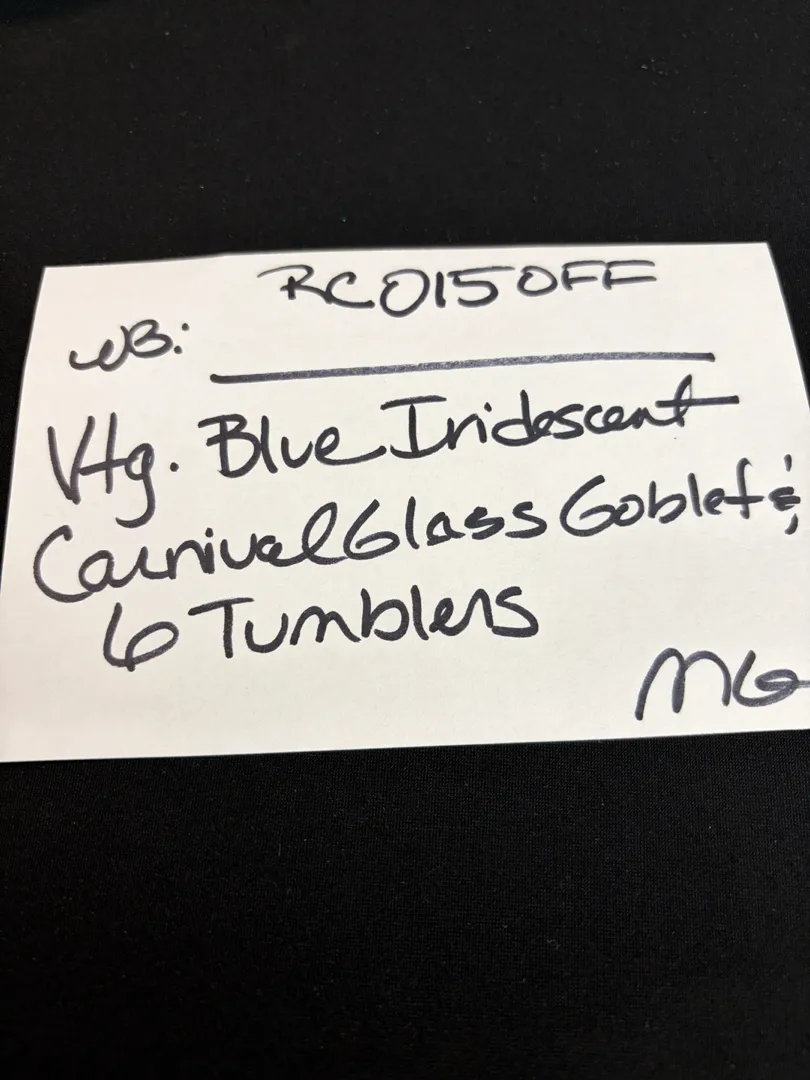 RC015OFF
WB:
Vtg. Blue Iridescent
Carnival Glass Goblet &
6 Tumblers
MG